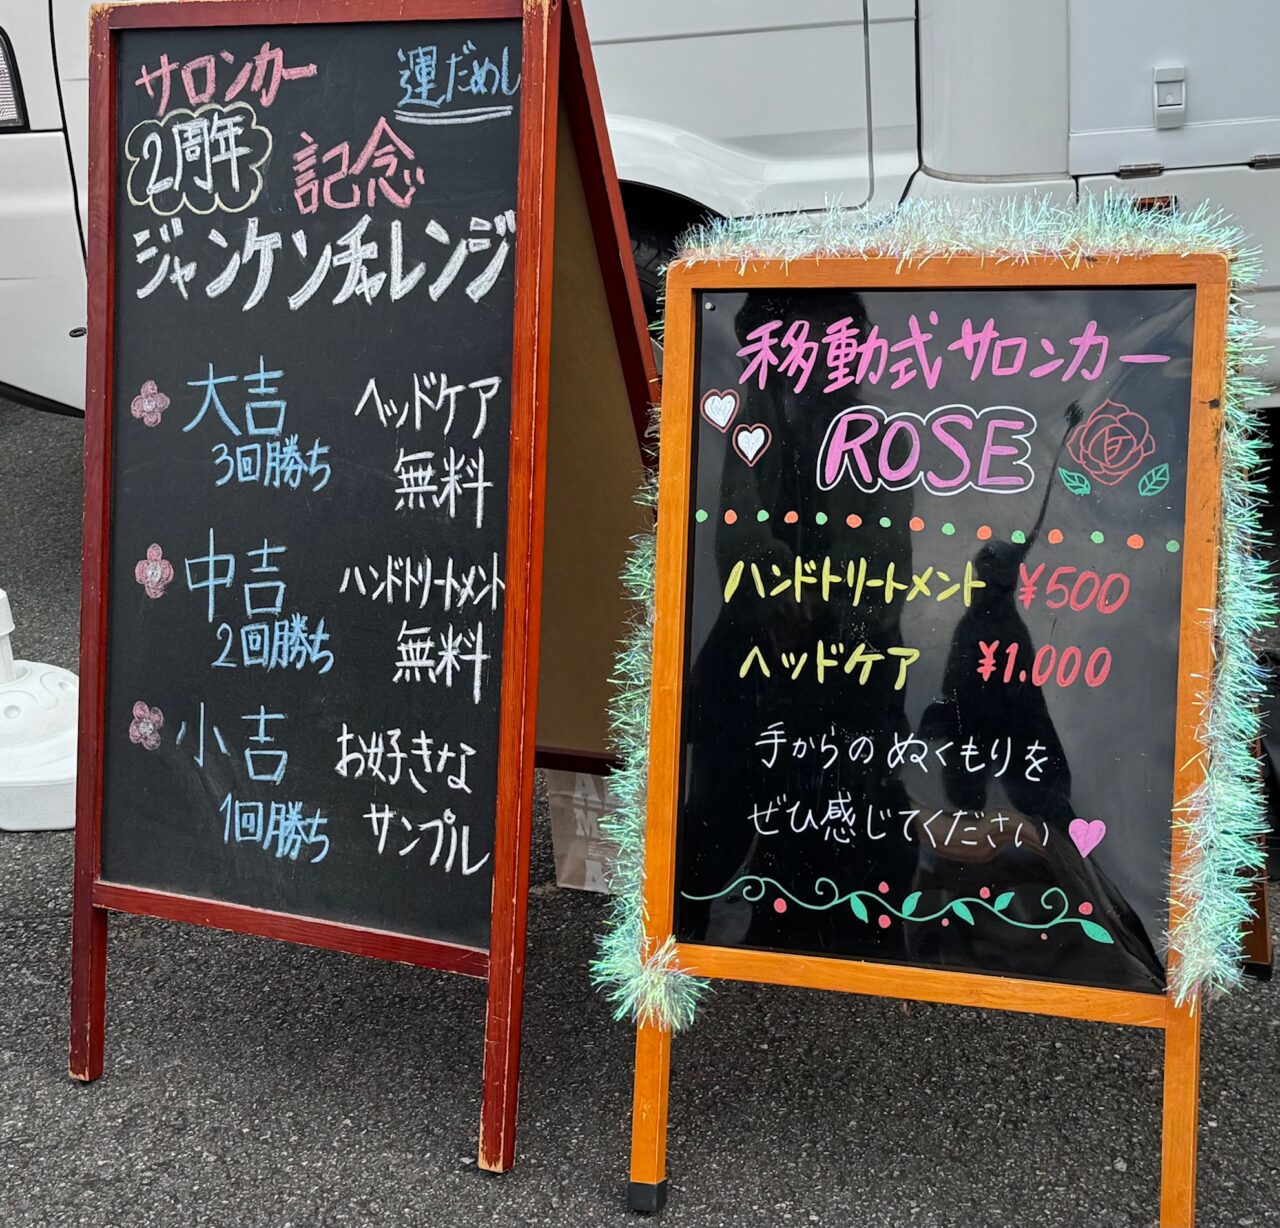 サロンカー 運だめし
2周年 記念
ジャンケンチャレンジ
大吉 ヘッドケア
3回勝ち 無料
中吉 ハンドトリートメント
2回勝ち 無料
小吉 お好きな
1回勝ち サンプル
移動式サロンカー
ROSE
ハンドトリートメント ¥500
ヘッドケア ¥1.000
手からのぬくもりを
ぜひ感じてください